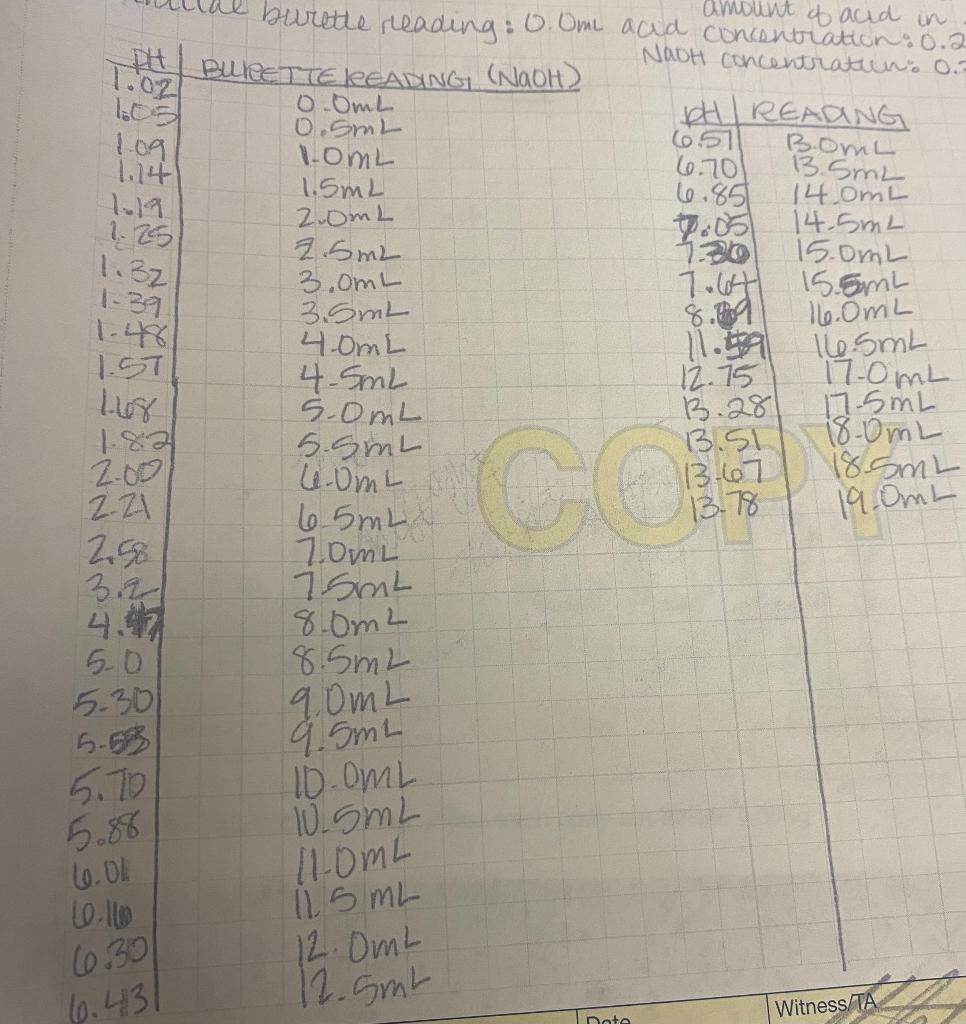 burette reading: 0.0mL acid
amount of acid in
concentration: 0.2
NaOH concentration: 0.
pH BURETTE READING (NaOH)
1.02 0.0mL
1.05 0.5mL
1.09 1.0mL
1.14 1.5mL
1.19 2.0mL
1.25 2.5mL
1.32 3.0mL
1.39 3.5mL
1.48 4.0mL
1.57 4.5mL
1.68 5.0mL
1.82 5.5mL
2.00 6.0mL
2.21 6.5mL
2.58 7.0mL
3.2 7.5mL
8.0mL
5.0 8.5mL
5.30 9.0mL
5.53 9.5mL
5.70 10.0mL
5.88 10.5mL
6.01 11.0mL
6.16 11.5mL
6.30 12.0mL
6.43 12.5mL
pH READING
6.57 13.0mL
6.70 13.5mL
6.85 14.0mL
7.05 14.5mL
7.30 15.0mL
7.64 15.5mL
16.0mL
11.59 16.5mL
12.75 17.0mL
13.28 17.5mL
13.51 18.0mL
13.67 18.5mL
13.78 19.0mL
COPY
Date
Witness/TA